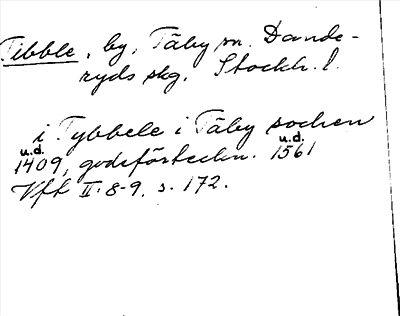 Tibble, by, Täby sn. Dande-
ryds skg, Stockh. l.
i Tybbele i Täby sochen
u.d. u.d.
1409, godsförteckn. 1561
Vfk II: 8-9, s. 172.